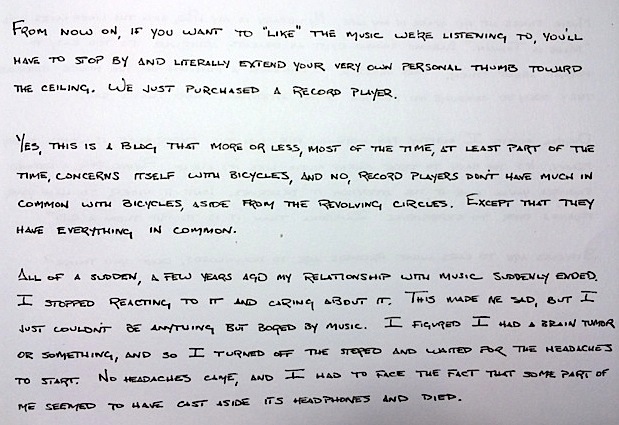 FROM NOW ON, IF YOU WANT TO "LIKE" THE MUSIC WE'RE LISTENING TO, YOU'LL
HAVE TO STOP BY AND LITERALLY EXTEND YOUR VERY OWN PERSONAL THUMB TOWARD
THE CEILING. WE JUST PURCHASED A RECORD PLAYER.
YES, THIS IS A BLOG THAT MORE OR LESS, MOST OF THE TIME, AT LEAST PART OF THE
TIME, CONCERNS ITSELF WITH BICYCLES, AND NO, RECORD PLAYERS DON'T HAVE MUCH IN
COMMON WITH BICYCLES, ASIDE FROM THE REVOLVING CIRCLES. EXCEPT THAT THEY
HAVE EVERYTHING IN COMMON.
ALL OF A SUDDEN, A FEW YEARS AGO MY RELATIONSHIP WITH MUSIC SUDDENLY ENDED.
I STOPPED REACTING TO IT AND CARING ABOUT IT. THIS MADE ME SAD, BUT I
JUST COULDN'T BE ANYTHING BUT BORED BY MUSIC. I FIGURED I HAD A BRAIN TUMOR
OR SOMETHING, AND SO I TURNED OFF THE STEREO AND WAITED FOR THE HEADACHES
TO START. NO HEADACHES CAME, AND I HAD TO FACE THE FACT THAT SOME PART OF
ME SEEMED TO HAVE CAST ASIDE ITS HEADPHONES AND DIED.